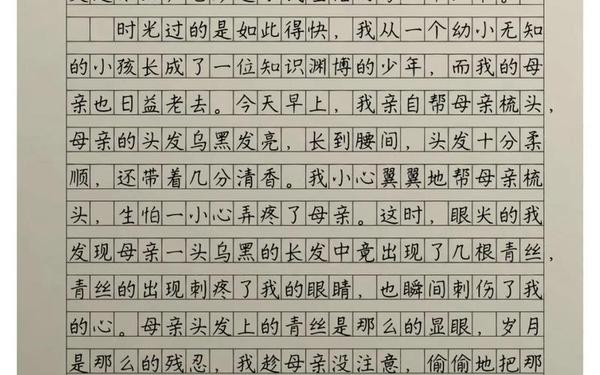 时光过的是如此得快，我从一个幼小无知
的小孩长成了一位知识渊博的少年，而我的母
亲也日益老去。今天早上，我亲自帮母亲梳头，
母亲的头发乌黑发亮，长到腰间，头发十分柔
顺，还带着几分清香。我小心翼翼地帮母亲梳
头，生怕一小心弄疼了母亲。这时，眼尖的我
发现母亲一头乌黑的长发中竟出现了几根青丝，
青丝的出现刺疼了我的眼睛，也瞬间刺伤了我
的心。母亲头发上的青丝是那么的显眼，岁月
是那么的残忍，我趁母亲没注意，偷偷地把那